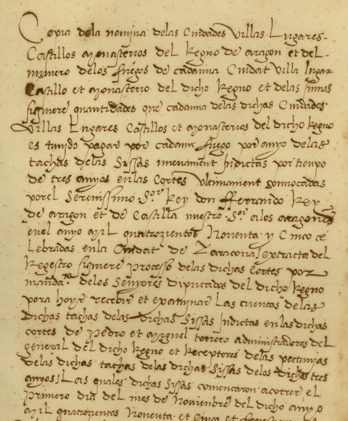 Copia dela nomina delas Ciudades Villas Lugares
Castillos monasterios del Regno de aragon et del
numero delos fuegos de cadauna Ciudat Villa lugar
Castillo et monasterio del dicho Regno et delas sumas
siquiere quantidades que cadauna delas dichas Ciudades
Villas Lugares Castillos et monasterios del dicho Regno
es tenido pagar por cadaun fuego por anyo delas
tachas delas Sissas indictas por tiempo
de tres anyos en las Cortes Ultimament convocadas
por el Serenissimo Sor Rey don Ferrando Rey
de aragon et de Castilla nuestro Sor alos aragoneses
en el anyo Mil quatrozientos Noventa y Cinco ce
lebradas en la Ciudat de Zaragoza extracta del
Registro siquiere Processo delas dichas cortes por
manda. delos Senyores Diputados del dicho Regno
pora hoyr recebir et examinar las cuentas delas
dichas tachas delas dichas Sissas Indictas en las dichas
cortes de Pedro et Miguel torrero administradores del
general del dicho Regno et Receptores delas pecunias
delas dichas tachas delas dichas Sissas delos dichos tres
anyos Las quales dichas Sissas comencaron a correr el
primero dia del mes de Noviembre del dicho anyo
Mil quatrozientos Noventa et Cinco et